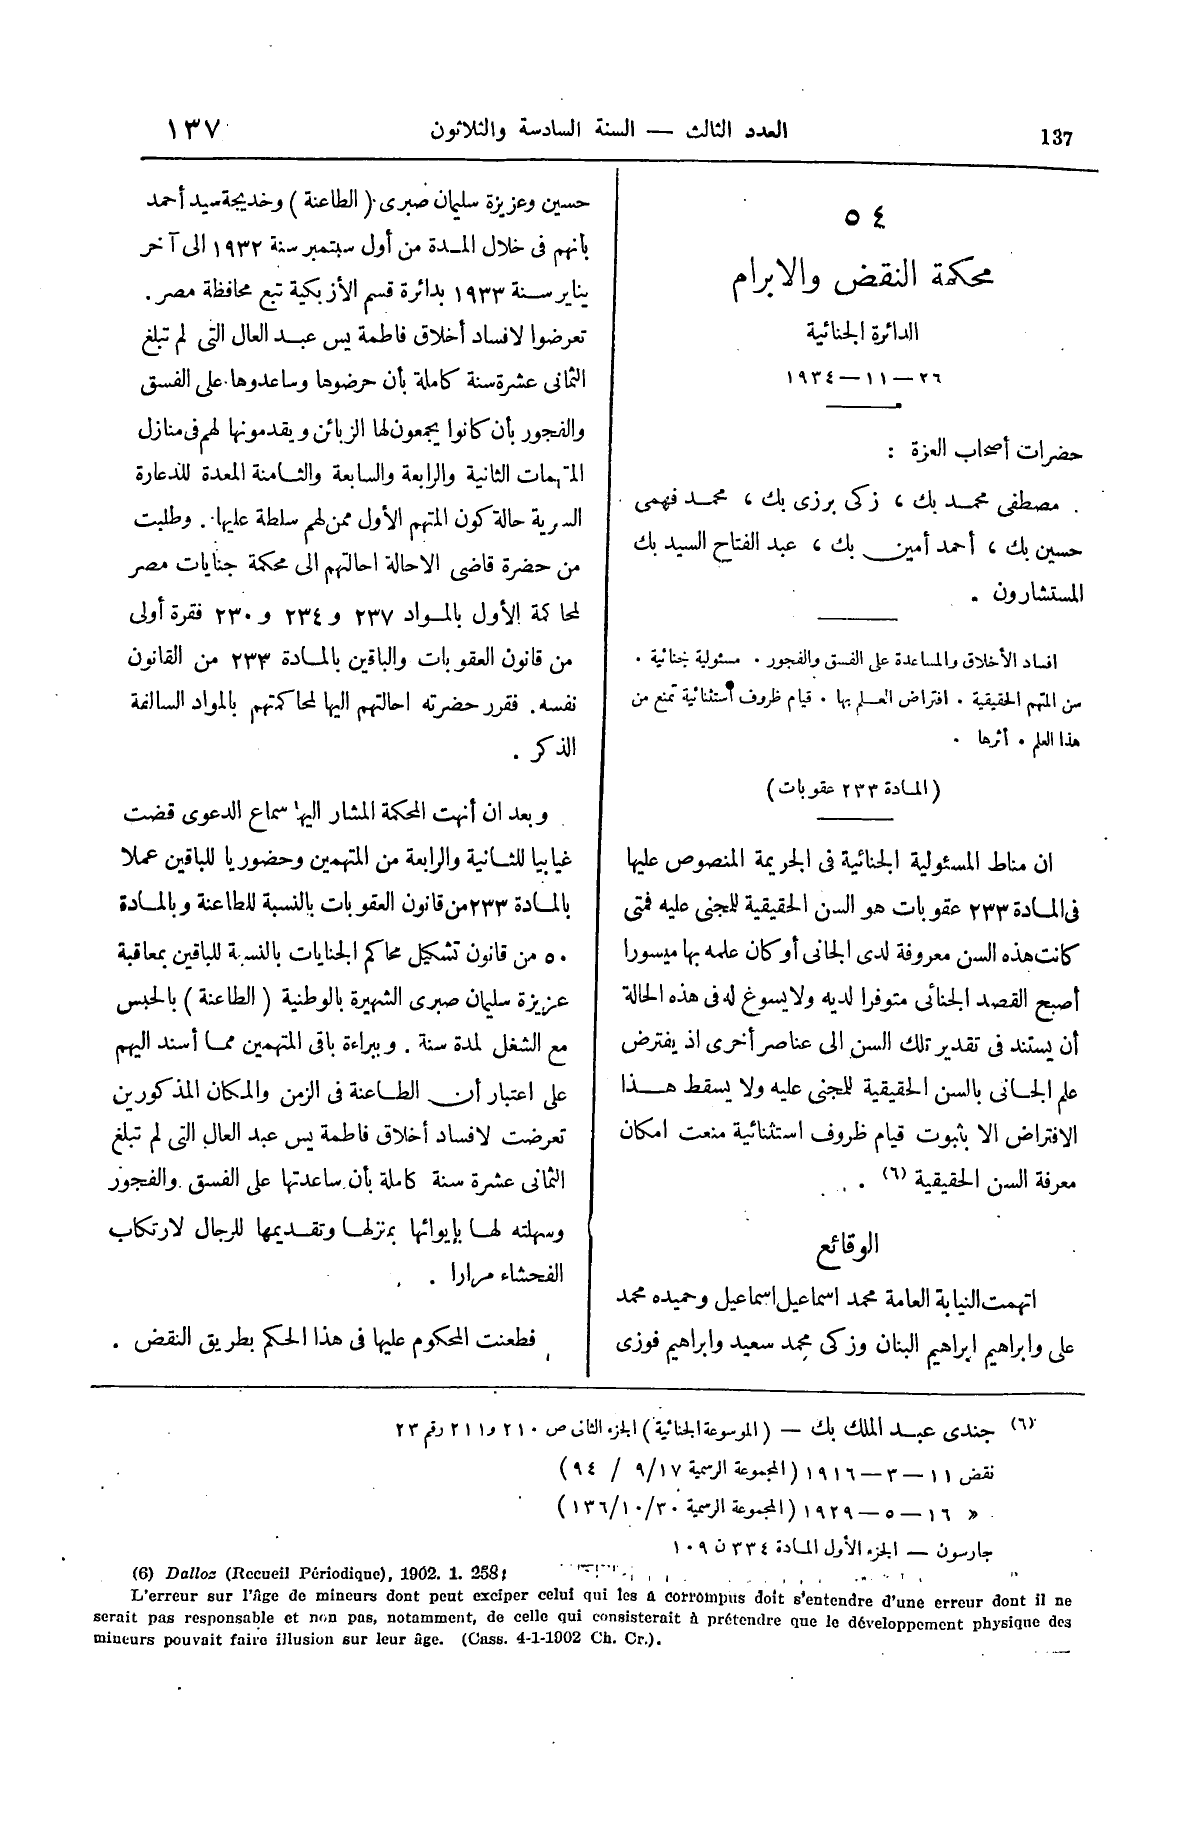 137 العدد الثالث — السنة السادسة والثلاثون ١٣٧
٥٤
محكمة النقض والابرام
الدائرة الجنائية
٢٦—١١—١٩٣٤
حضرات أصحاب العزة :
مصطفى محمد بك ، زكى برزى بك ، محمد فهمى
حسين بك ، أحمد أمين بك ، عبد الفتاح السيد بك
المستشارون .
افساد الأخلاق والمساعدة على الفسق والفجور . مسئولية جنائية .
سن المتهم الحقيقية . افتراض العلم بها . قيام ظروف استثنائية تمنع من
هذا العلم . أثرها .
(المادة ٢٣٣ عقوبات)
ان مناط المسئولية الجنائية فى الجريمة المنصوص عليها
فى المادة ٢٣٣ عقوبات هو السن الحقيقية للمجنى عليه فمتى
كانت هذه السن معروفة لدى الجانى أو كان علمه بها ميسورا
أصبح القصد الجنائى متوفرا لديه ولا يسوغ له فى هذه الحالة
أن يستند فى تقدير تلك السن الى عناصر أخرى اذ يفترض
علم الجانى بالسن الحقيقية للمجنى عليه ولا يسقط هذا
الافتراض الا بثبوت قيام ظروف استثنائية منعت امكان
معرفة السن الحقيقية (٦) .
الوقائع
اتهمت النيابة العامة محمد اسماعيل اسماعيل وحميده محمد
على وابراهيم ابراهيم البنان وزكى محمد سعيد وابراهيم فوزى
حسين وعزيزة سليمان صبرى (الطاعنة) وخديجة سيد أحمد
بأنهم فى خلال المدة من أول سبتمبر سنة ١٩٣٢ الى آخر
يناير سنة ١٩٣٣ بدائرة قسم الأزبكية تبع محافظة مصر .
تعرضوا لافساد أخلاق فاطمة يس عبد العال التى لم تبلغ
الثمانى عشرة سنة كاملة بأن حرضوها وساعدوها على الفسق
والفجور بأن كانوا يجمعون لها الزبائن ويقدمونها لهم فى منازل
المتهمات الثانية والرابعة والسابعة والثامنة المعدة للدعارة
السرية حالة كون المتهم الأول ممن لهم سلطة عليها . وطلبت
من حضرة قاضى الاحالة احالتهم الى محكمة جنايات مصر
لمحاكمة الأول بالمواد ٢٣٧ و ٢٣٤ و ٢٣٠ فقرة أولى
من قانون العقوبات والباقين بالمادة ٢٣٣ من القانون
نفسه . فقرر حضرته احالتهم اليها لمحاكمتهم بالمواد السالفة
الذكر .
وبعد ان أنهت المحكمة المشار اليها سماع الدعوى قضت
غيابيا للثانية والرابعة من المتهمين وحضوريا للباقين عملا
بالمادة ٢٣٣ من قانون العقوبات بالنسبة للطاعنة وبالمادة
٥٠ من قانون تشكيل محاكم الجنايات بالنسبة للباقين بمعاقبة
عزيزة سليمان صبرى الشهيرة بالوطنية (الطاعنة) بالحبس
مع الشغل لمدة سنة . وببراءة باقى المتهمين مما أسند اليهم
على اعتبار أن الطاعنة فى الزمن والمكان المذكورين
تعرضت لافساد أخلاق فاطمة يس عبد العال التى لم تبلغ
الثمانى عشرة سنة كاملة بأن ساعدتها على الفسق والفجور
وسهلته لها بإيوائها بمنزلها وتقديمها للرجال لارتكاب
الفحشاء مرارا .
فطعنت المحكوم عليها فى هذا الحكم بطريق النقض .
(٦) جندى عبد الملك بك — (الموسوعة الجنائية) الجزء الثانى ص ٢١٠ و٢١١ رقم ٢٣
نقض ١١—٣—١٩١٦ (المجموعة الرسمية ٩/١٧ / ٩٤)
» ١٦—٥—١٩٢٩ (المجموعة الرسمية ١٣٦/١٠/٣٠)
جارسون — الجزء الأول المادة ٣٣٤ ن ١٠٩
(6) Dalloz (Recueil Périodique), 1902. 1. 258;
L'erreur sur l'âge de mineurs dont peut exciper celui qui les a corrompus doit s'entendre d'une erreur dont il ne
serait pas responsable et non pas, notamment, de celle qui consisterait à prétendre que le développement physique des
mineurs pouvait faire illusion sur leur âge. (Cass. 4-1-1902 Ch. Cr.).